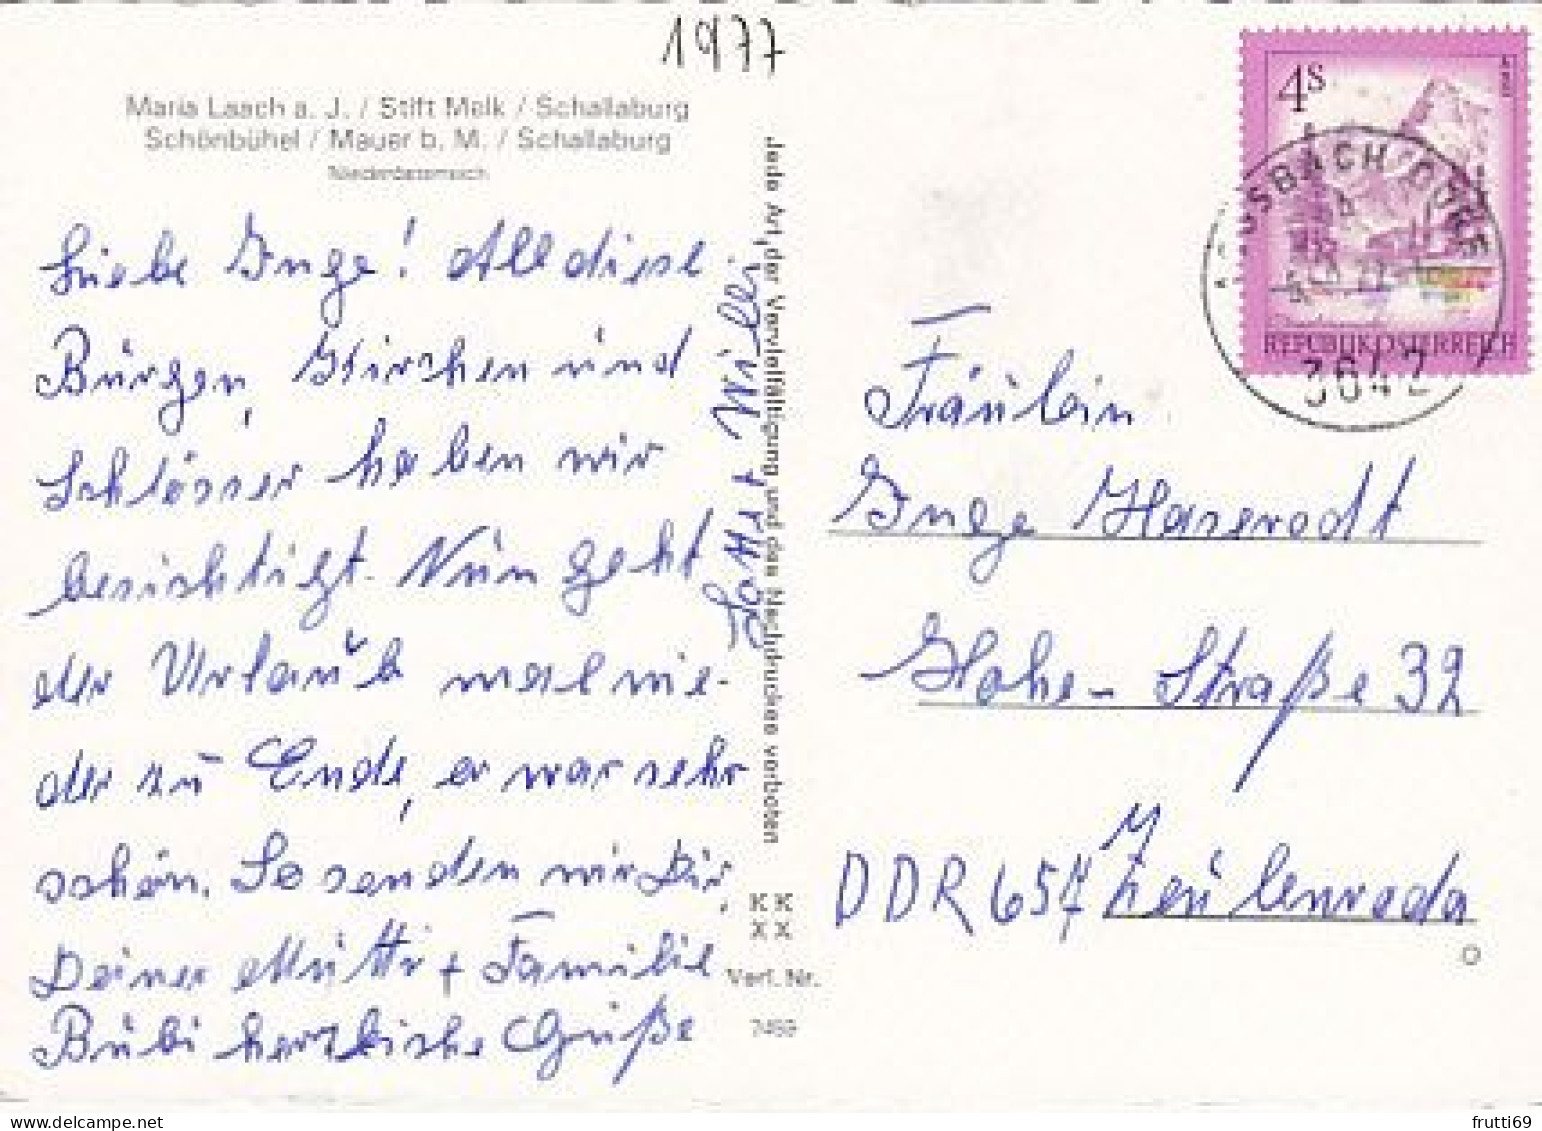 1977
Maria Laach a. J. / Stift Melk / Schallaburg
Schönbühel / Mauer b. M. / Schallaburg
Niederösterreich
Liebe Inge! All diese
Bürgen, Kirchen und
Schlösser haben wir
besichtigt. Nun geht
der Urlaub mal wie-
der zu Ende, er war sehr
schön. So senden wir Dir,
Deiner Mutti + Familie
Bubi herzliche Grüße
Lotte + Willi
Jede Art der Vervielfältigung und des Nachdruckes verboten
KK
XX
Verl. Nr.
4S
REPUBLIK ÖSTERREICH
AGGSBACH DORF
3642
Fräulein
Inge Haserodt
Hohe-Straße 32
DDR 657 Zeulenroda
frutti69